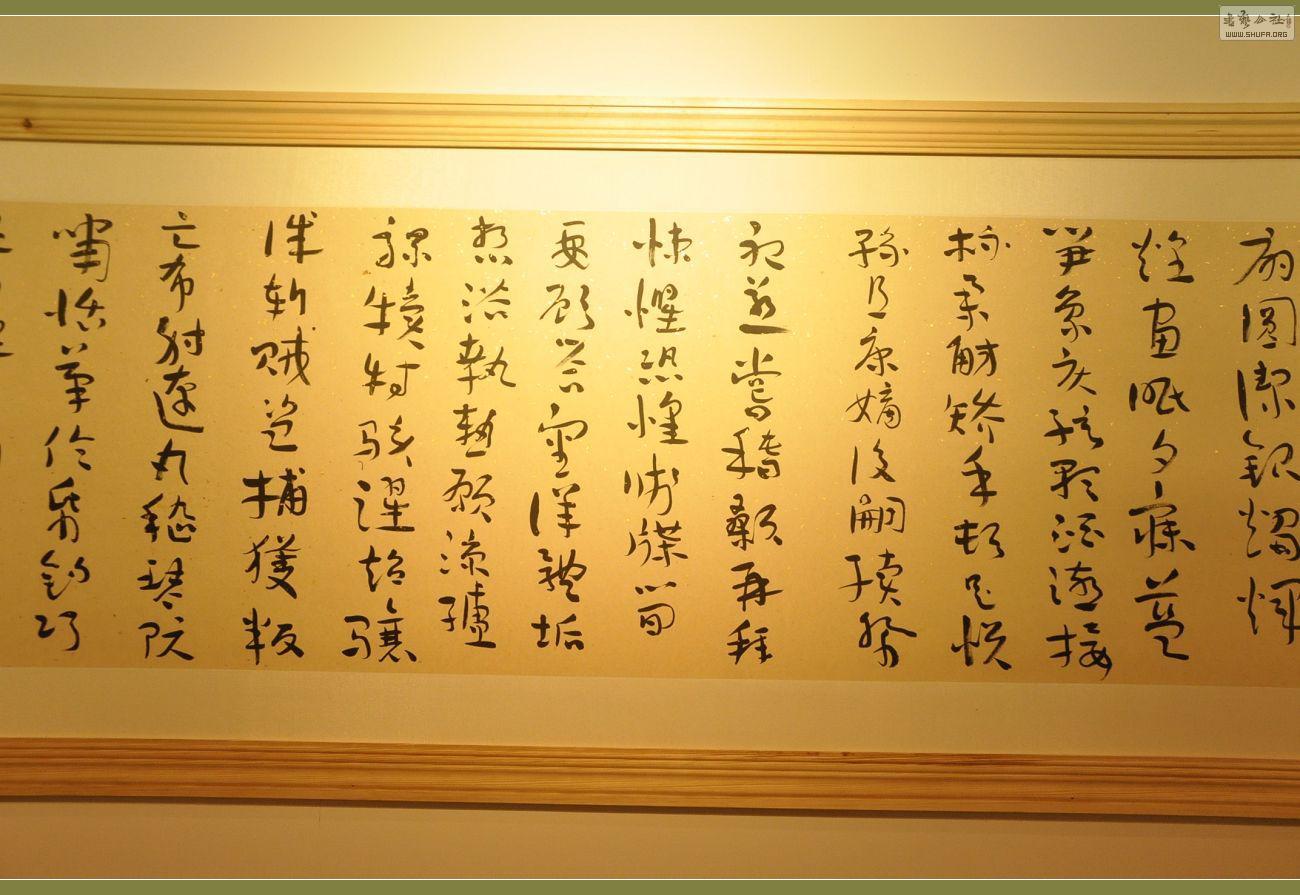 扇圓潔銀燭煒
煌晝眠夕寐藍
筍象床弦歌酒讌接
杯舉觴矯手頓足悅
豫且康嫡後嗣續祭
祀蒸嘗稽顙再拜
悚懼恐惶箋牒簡
要顧答審詳骸垢
想浴執熱願涼驢
騾犢特駭躍超驤
誅斬賊盜捕獲叛
亡布射遼丸嵇琴阮
嘯恬筆倫紙鈞巧
書藝公社
WWW.SHUFA.ORG